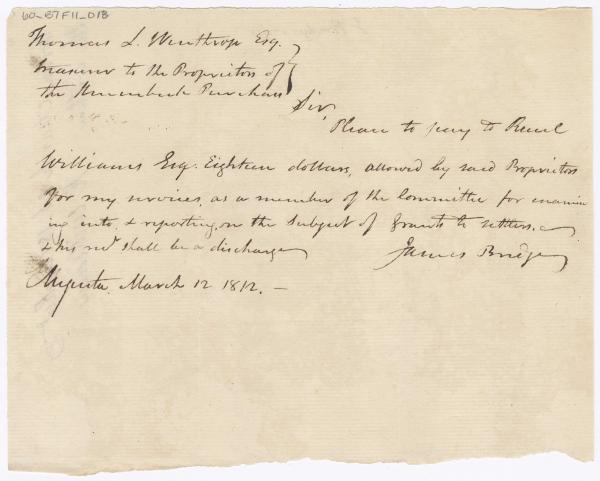 60_B7F11_013
Thomas L. Winthrop Esq.
Treasurer to the Proprietors of
the Kennebeck Purchase
Sir,
Please to pay to Reuel
Williams Esq. Eighteen dollars, allowed by said Proprietors
for my services, as a member of the Committee for examin
ing into, & reporting, on the subject of grants to settlers.
& his rect. shall be a discharge
James Bridge
Augusta. March 12 1812. —